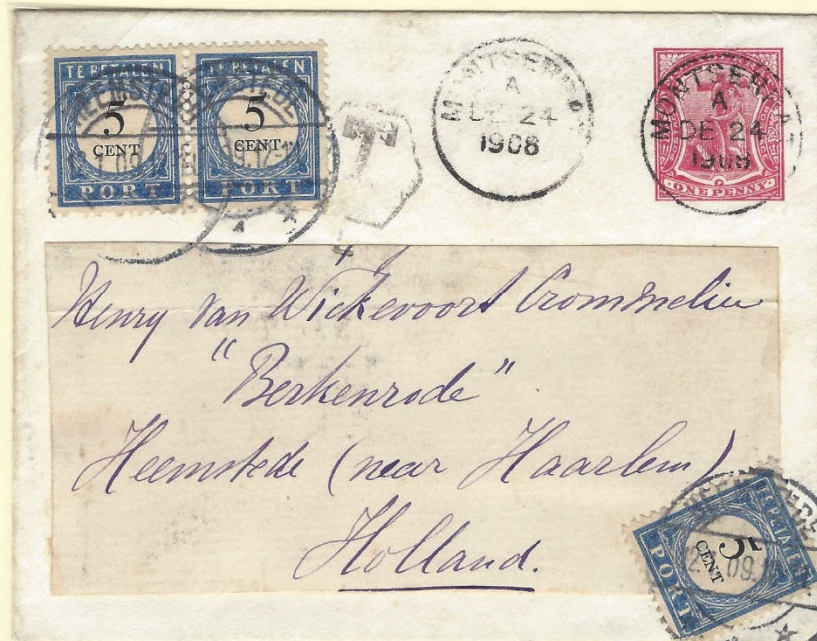 TE BETALEN TE BETALEN
5 5
CENT CENT
PORT PORT
HEEMSTEDE
T
MONTSERRAT
A
DE 24
1908
MONTSERRAT
A
DE 24
1908
ONE PENNY
Henry van Wickevoort Crommelin
"Berkenrode"
Heemstede (near Haarlem)
Holland.
TE BETALEN
5
CENT
PORT